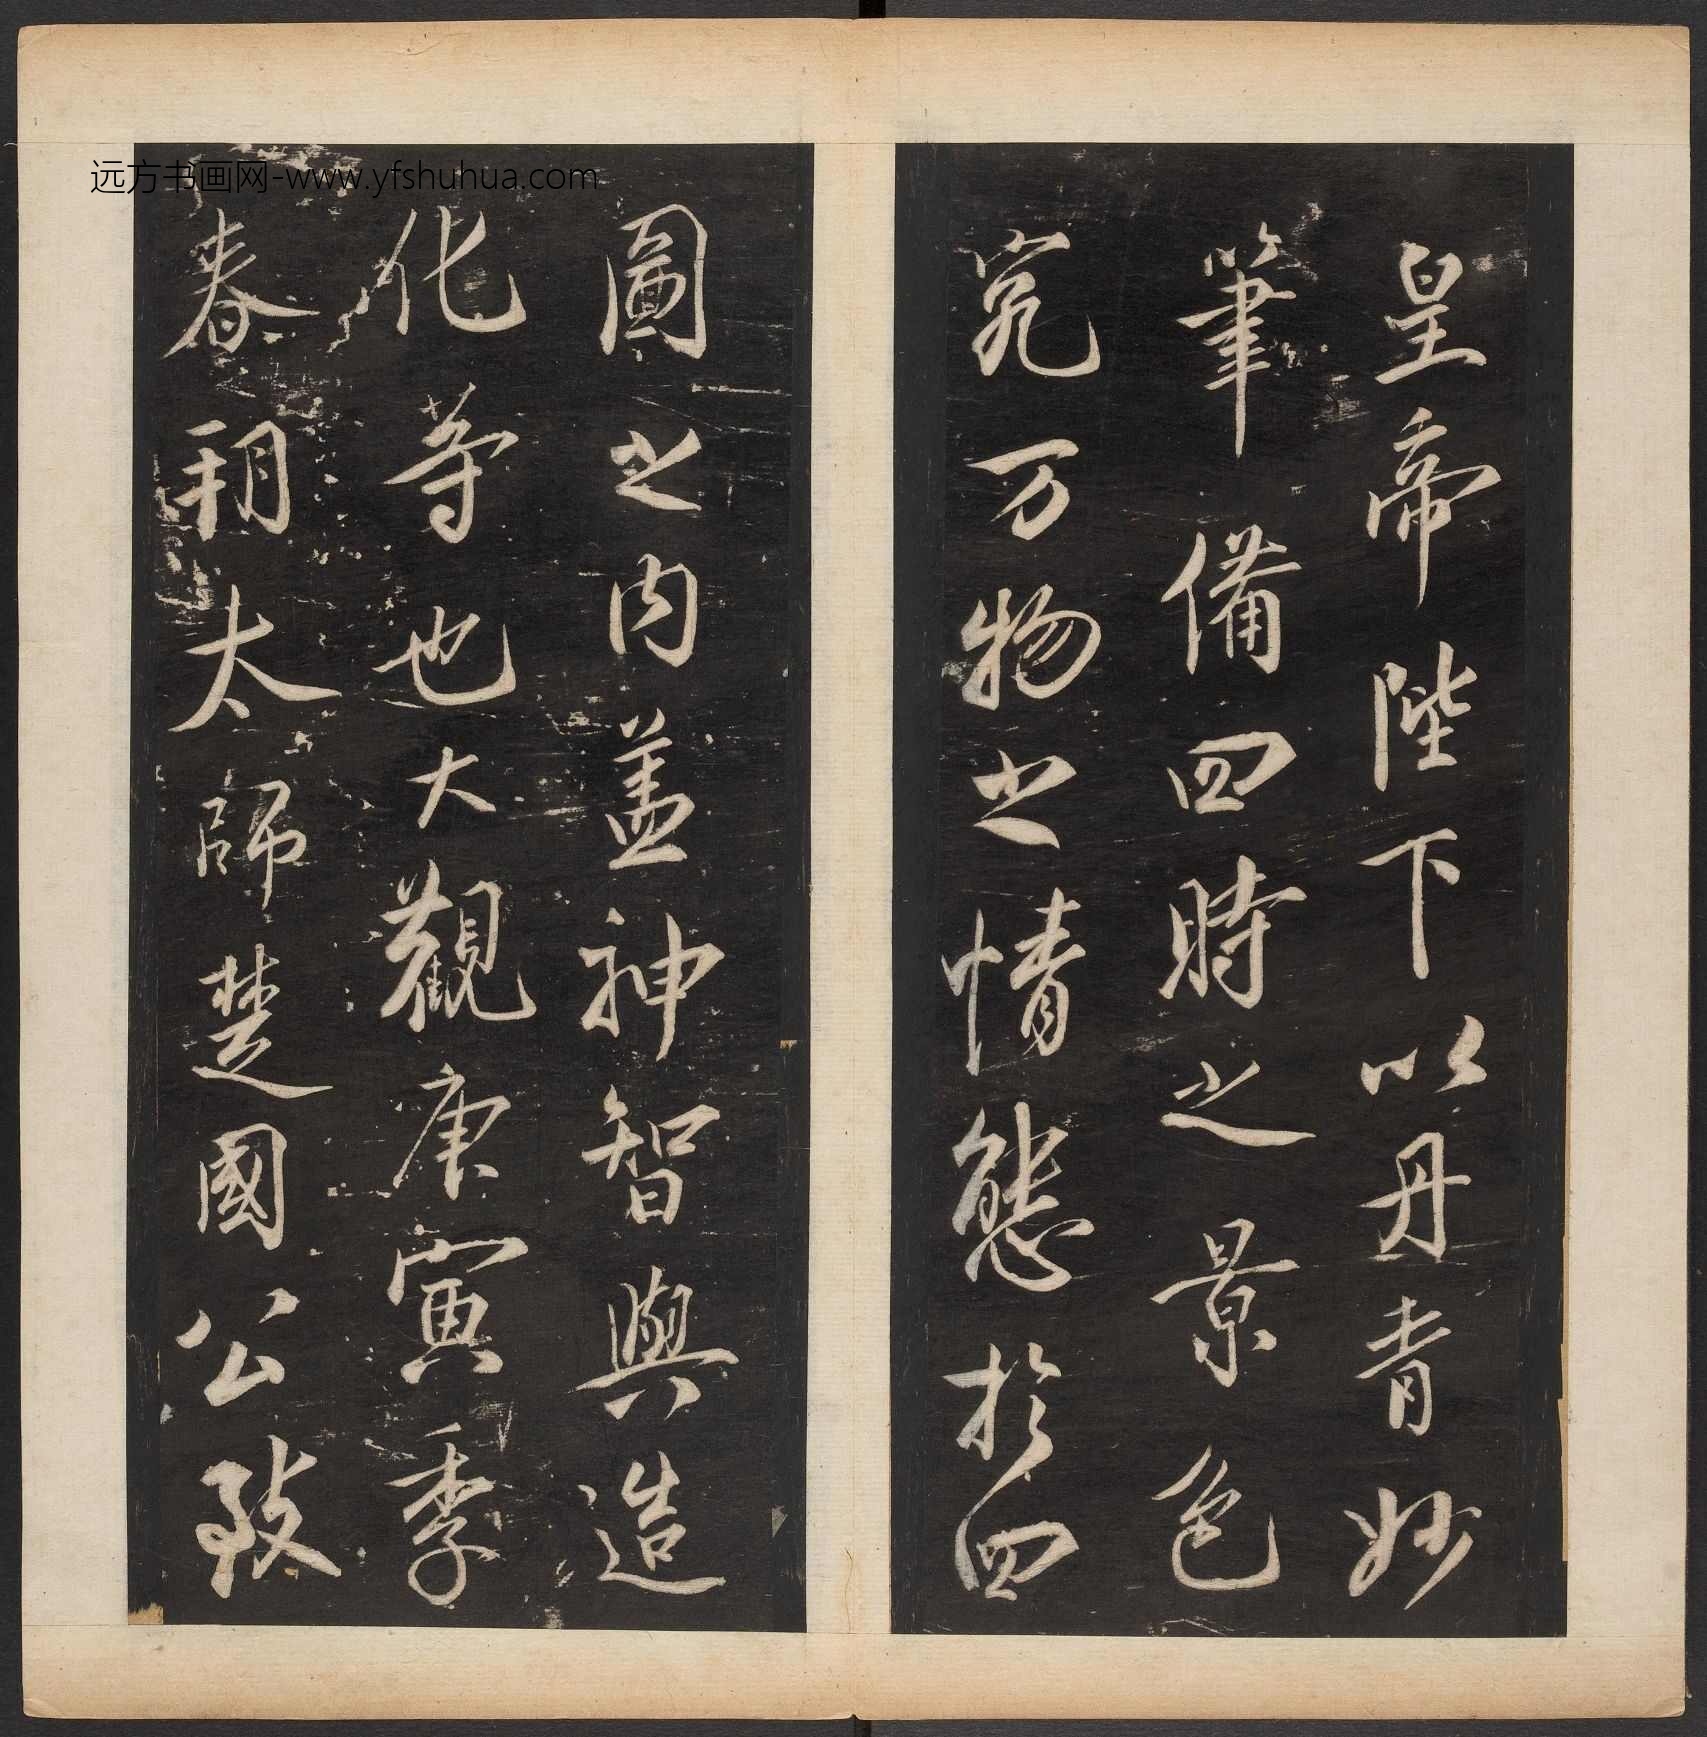 皇帝陛下以丹青妙
筆備四時之景色
究万物之情態於四
圖之内盖神智與造
化等也大觀庚寅季
春朔太師楚國公致
远方书画网-www.yfshuhua.com